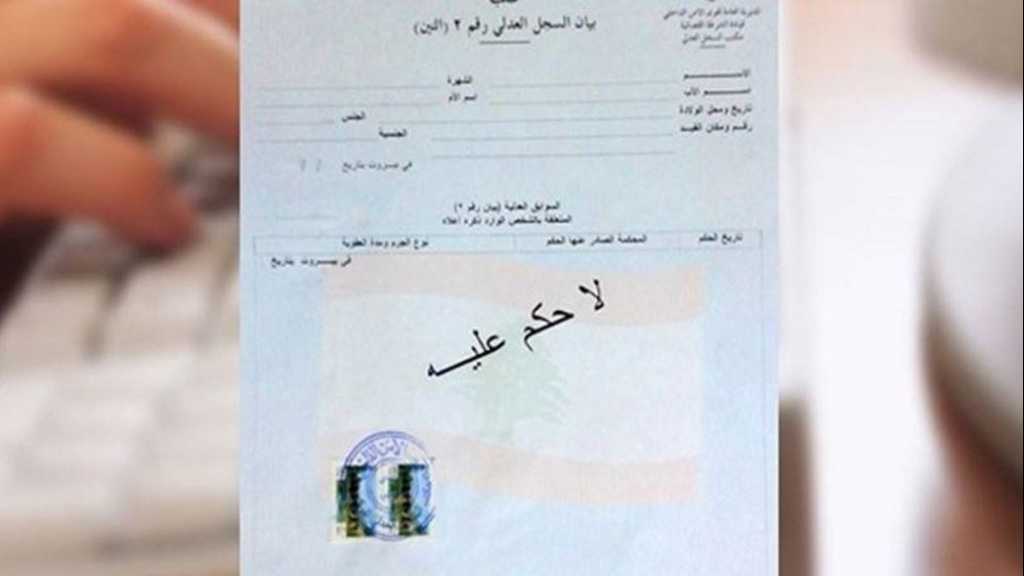 المديرية العامة لقوى الأمن الداخلي
قيادة الشرطة القضائية
مكتب السجل العدلي
بيان السجل العدلي رقم ٢ (اثنين)
الاســـــــم
الشهرة
اســـم الأب
اسم الأم
تاريخ ومحل الولادة
الجنس
رقـم ومكـان القيـد
الجنسية
في بيـروت بتاريخ / /
السوابق العدلية (بيان رقم ٢)
المتعلقة بالشخص الوارد ذكره أعلاه
تاريخ الحكم
المحكمة الصادر عنها الحكم
نوع الجرم ومدة العقوبة
في بيـــروت بتاريخ
لا حكم عليـــه